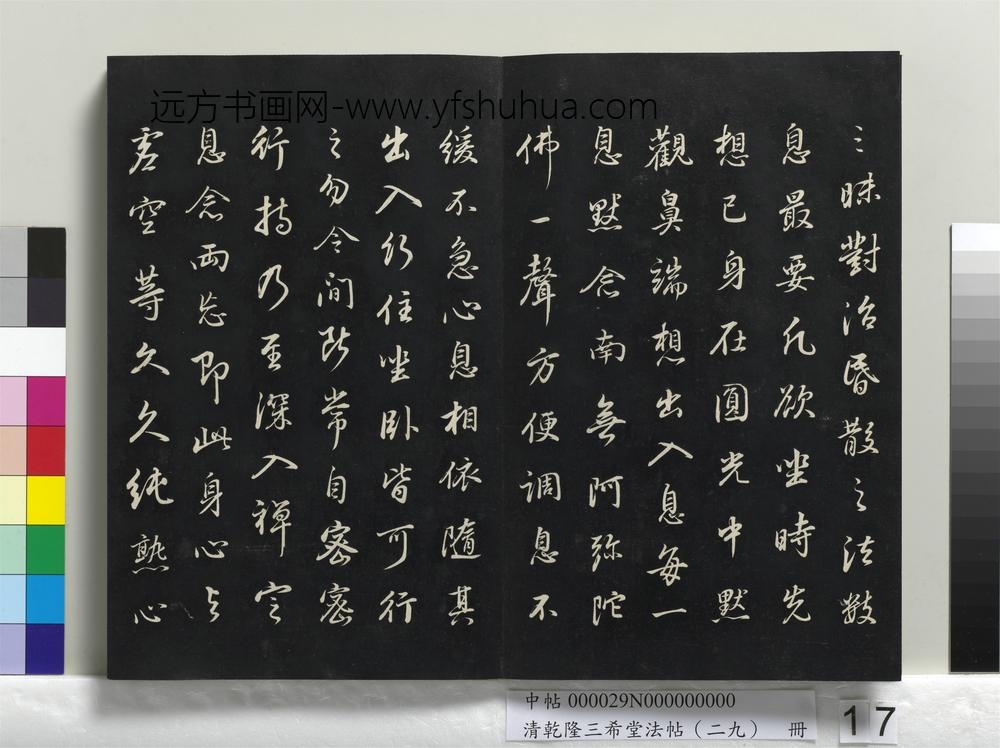 远方书画网-www.yfshuhua.com
三昧對治昏散之法數
息最要凡欲坐時先
想己身在圓光中默
觀鼻端想出入息每一
息默念南無阿彌陀
佛一聲方便調息不
緩不急心息相依隨其
出入行住坐卧皆可行
之勿令間斷常自密密
行持乃至深入禪定
息念兩忘即此身心與
虛空等久久純熟心
中帖 000029N000000000
清乾隆三希堂法帖（二九） 冊
17